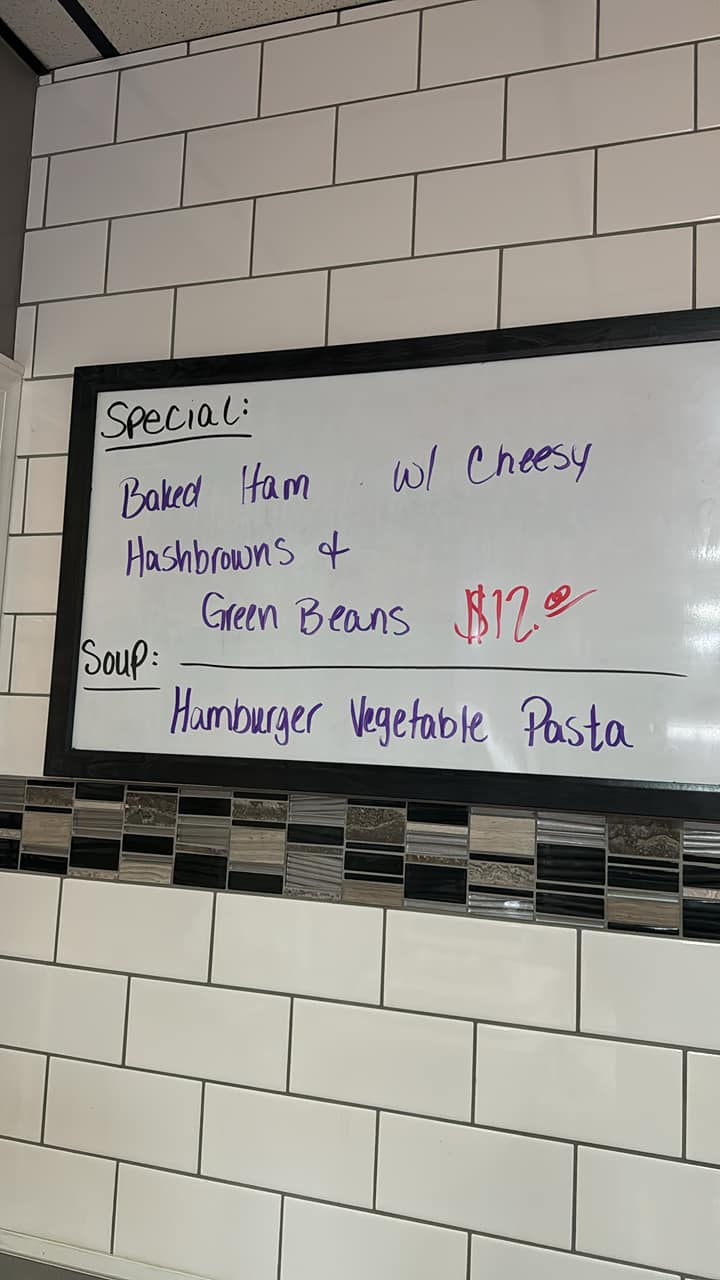 Special:
Baked Ham w/ Cheesy
Hashbrowns &
Green Beans $12.00
Soup:
Hamburger Vegetable Pasta